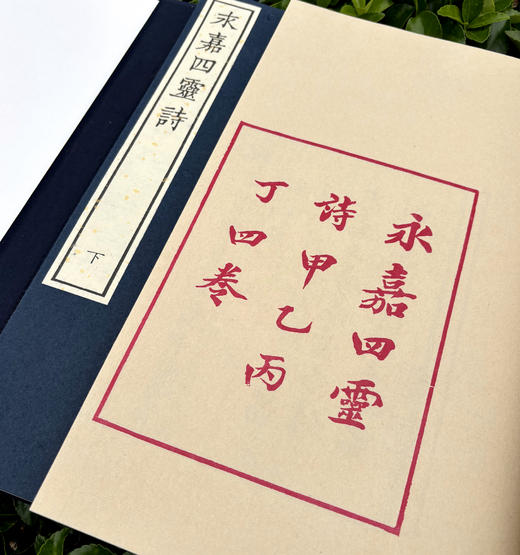 永嘉四靈詩
下
永嘉四靈
詩甲乙丙
丁四卷